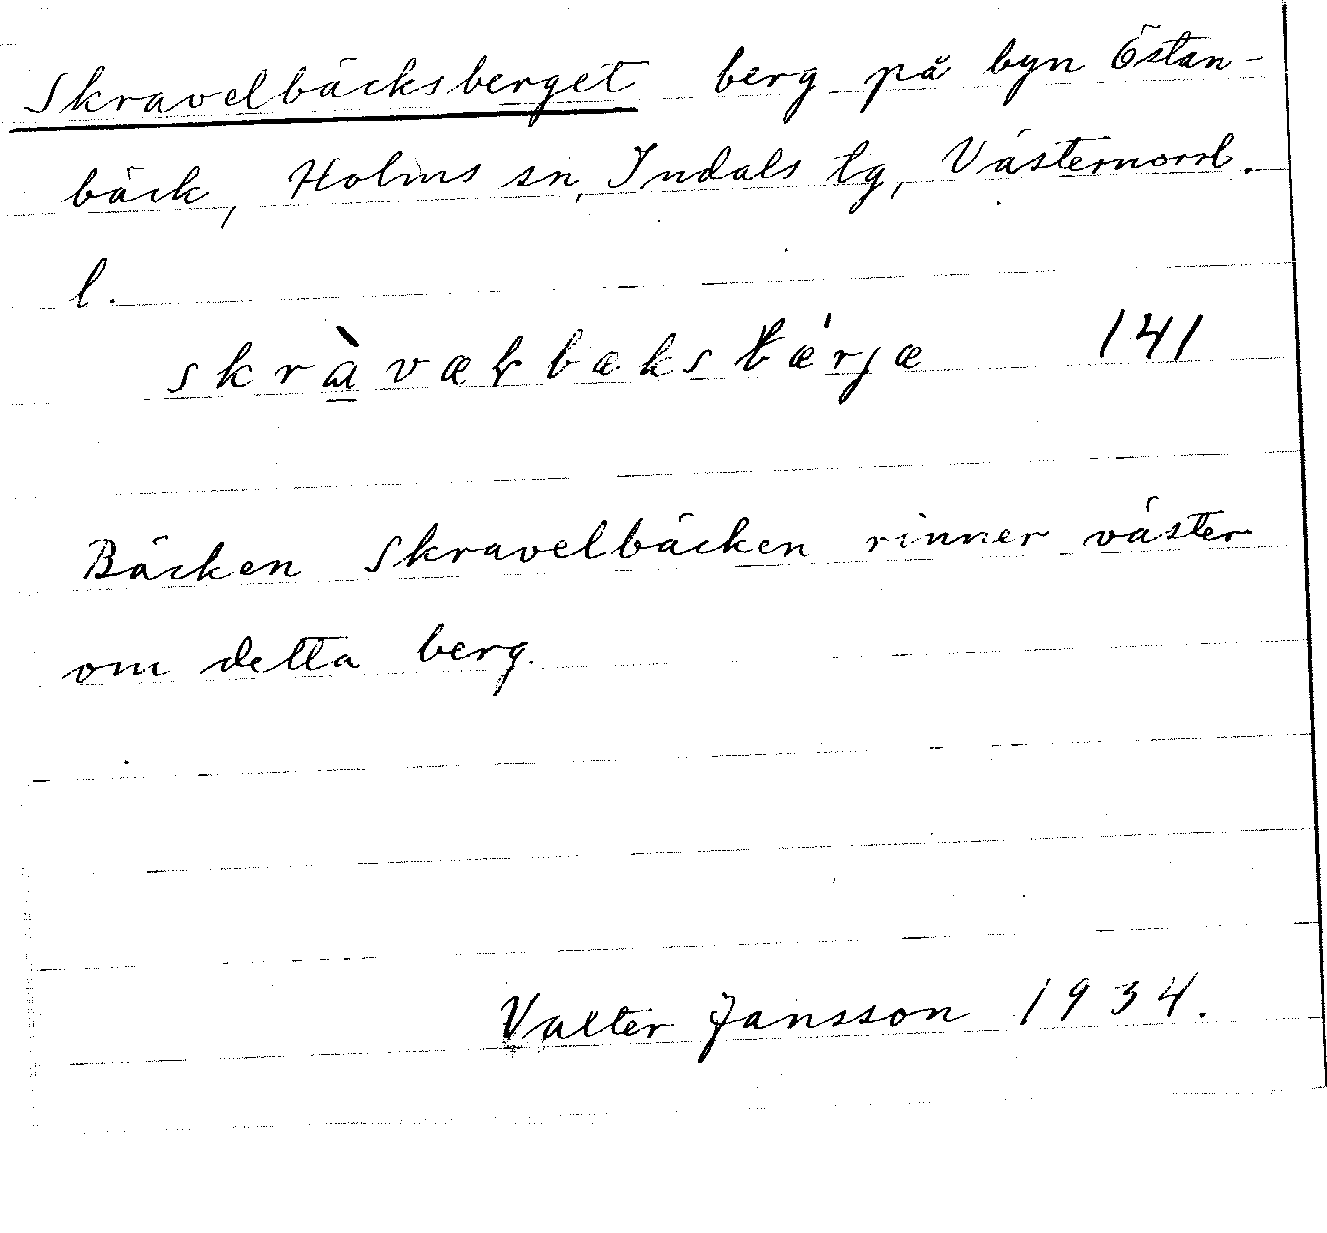 Skravelbäcksberget berg på byn Östan-
bäck, Holms sn, Indals tg, Västernorrl.
l.
skràvæɽbæksbærjæ 141
Bäcken Skravelbäcken rinner väster
om detta berg.
Valter Jansson 1934.